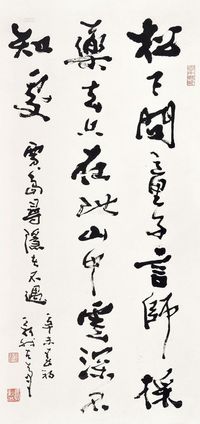 松下問童子言師採
藥去只在此山中雲深不
知處
賈島尋隱者不遇
辛未